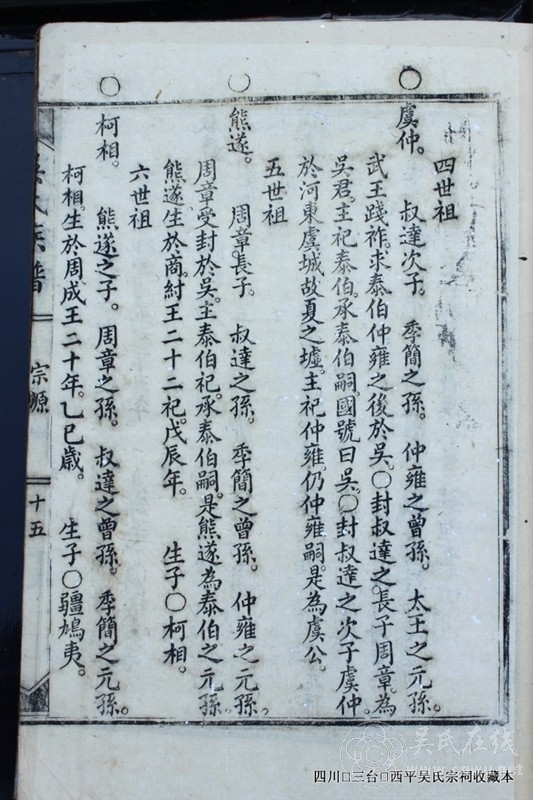 四世祖
○虞仲。 叔達次子。 季簡之孫。 仲雍之曾孫。 太王之元孫。
武王踐祚。求泰伯仲雍之後於吳。○封叔達之長子周章。為
吳君。主祀泰伯。承泰伯嗣。國號曰吳。○封叔達之次子虞仲。
於河東虞城故夏之墟。主祀仲雍。仍仲雍嗣。是為虞公。
五世祖
○熊遂。 周章長子。 叔達之孫。 季簡之曾孫。 仲雍之元孫。
周章受封於吳。主泰伯祀。承泰伯嗣。是熊遂為泰伯之元孫。
熊遂。生於商。紂王二十二祀。戊辰年。 生子○柯相。
六世祖
○柯相。 熊遂之子。 周章之孫。 叔達之曾孫。 季簡之元孫。
柯相。生於周。成王二十年。乙巳歲。 生子○彊鳩夷。
氏族譜 宗源 十五
四川□三台□西平吴氏宗祠收藏本
吴氏在线